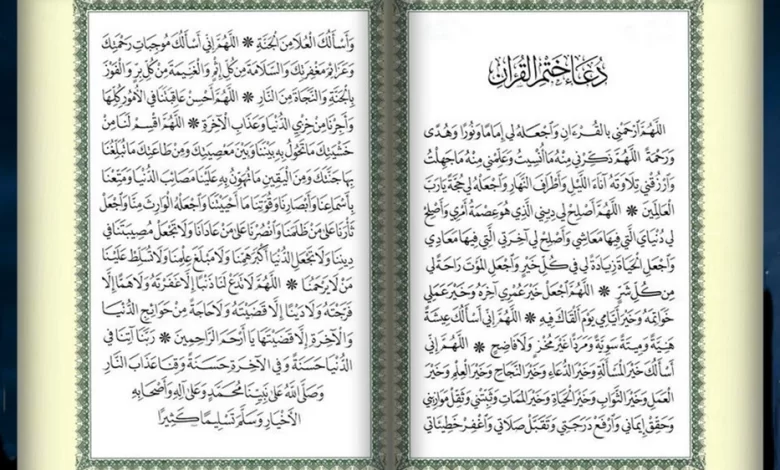 دُعَاءُ خَتْمِ الْقُرْآنِ
اللَّهُمَّ ارْحَمْنِي بِالْقُرْءَانِ وَاجْعَلْهُ لِي إِمَامًا وَنُورًا وَهُدًى
وَرَحْمَةً ❋ اللَّهُمَّ ذَكِّرْنِي مِنْهُ مَا نُسِّيتُ وَعَلِّمْنِي مِنْهُ مَا جَهِلْتُ
وَارْزُقْنِي تِلَاوَتَهُ آنَاءَ اللَّيْلِ وَأَطْرَافَ النَّهَارِ وَاجْعَلْهُ لِي حُجَّةً يَارَبَّ
الْعَالَمِينَ ❋ اللَّهُمَّ أَصْلِحْ لِي دِينِي الَّذِي هُوَ عِصْمَةُ أَمْرِي وَأَصْلِحْ
لِي دُنْيَايَ الَّتِي فِيهَا مَعَاشِي وَأَصْلِحْ لِي آخِرَتِي الَّتِي فِيهَا مَعَادِي
وَاجْعَلِ الْحَيَاةَ زِيَادَةً لِي فِي كُلِّ خَيْرٍ وَاجْعَلِ الْمَوْتَ رَاحَةً لِي
مِنْ كُلِّ شَرٍّ ❋ اللَّهُمَّ اجْعَلْ خَيْرَ عُمْرِي آخِرَهُ وَخَيْرَ عَمَلِي
خَوَاتِمَهُ وَخَيْرَ أَيَّامِي يَوْمَ أَلْقَاكَ فِيهِ ❋ اللَّهُمَّ إِنِّي أَسْأَلُكَ عِيشَةً
هَنِيَّةً وَمِيتَةً سَوِيَّةً وَمَرَدًّا غَيْرَ مُخْزٍ وَلَا فَاضِحٍ ❋ اللَّهُمَّ إِنِّي
أَسْأَلُكَ خَيْرَ الْمَسْأَلَةِ وَخَيْرَ الدُّعَاءِ وَخَيْرَ النَّجَاحِ وَخَيْرَ الْعِلْمِ وَخَيْرَ
الْعَمَلِ وَخَيْرَ الثَّوَابِ وَخَيْرَ الْحَيَاةِ وَخَيْرَ الْمَمَاتِ وَثَبِّتْنِي وَثَقِّلْ مَوَازِينِي
وَحَقِّقْ إِيمَانِي وَارْفَعْ دَرَجَتِي وَتَقَبَّلْ صَلَاتِي وَاغْفِرْ خَطِيئَاتِي
وَأَسْأَلُكَ الْعُلَا مِنَ الْجَنَّةِ ❋ اللَّهُمَّ إِنِّي أَسْأَلُكَ مُوجِبَاتِ رَحْمَتِكَ
وَعَزَائِمَ مَغْفِرَتِكَ وَالسَّلَامَةَ مِنْ كُلِّ إِثْمٍ وَالْغَنِيمَةَ مِنْ كُلِّ بِرٍّ وَالْفَوْزَ
بِالْجَنَّةِ وَالنَّجَاةَ مِنَ النَّارِ ❋ اللَّهُمَّ أَحْسِنْ عَاقِبَتَنَا فِي الْأُمُورِ كُلِّهَا
وَأَجِرْنَا مِنْ خِزْيِ الدُّنْيَا وَعَذَابِ الْآخِرَةِ ❋ اللَّهُمَّ اقْسِمْ لَنَا مِنْ
خَشْيَتِكَ مَا تَحُولُ بِهِ بَيْنَنَا وَبَيْنَ مَعْصِيَتِكَ وَمِنْ طَاعَتِكَ مَا تُبَلِّغُنَا
بِهَا جَنَّتَكَ وَمِنَ الْيَقِينِ مَا تُهَوِّنُ بِهِ عَلَيْنَا مَصَائِبَ الدُّنْيَا وَمَتِّعْنَا
بِأَسْمَاعِنَا وَأَبْصَارِنَا وَقُوَّتِنَا مَا أَحْيَيْتَنَا وَاجْعَلْهُ الْوَارِثَ مِنَّا وَاجْعَلْ
ثَأْرَنَا عَلَى مَنْ ظَلَمَنَا وَانْصُرْنَا عَلَى مَنْ عَادَانَا وَلَا تَجْعَلْ مُصِيبَتَنَا فِي
دِينِنَا وَلَا تَجْعَلِ الدُّنْيَا أَكْبَرَ هَمِّنَا وَلَا مَبْلَغَ عِلْمِنَا وَلَا تُسَلِّطْ عَلَيْنَا
مَنْ لَا يَرْحَمُنَا ❋ اللَّهُمَّ لَا تَدَعْ لَنَا ذَنْبًا إِلَّا غَفَرْتَهُ وَلَا هَمًّا إِلَّا
فَرَّجْتَهُ وَلَا دَيْنًا إِلَّا قَضَيْتَهُ وَلَا حَاجَةً مِنْ حَوَائِجِ الدُّنْيَا
وَالْآخِرَةِ إِلَّا قَضَيْتَهَا يَا أَرْحَمَ الرَّاحِمِينَ ❋ رَبَّنَا آتِنَا فِي
الدُّنْيَا حَسَنَةً وَفِي الْآخِرَةِ حَسَنَةً وَقِنَا عَذَابَ النَّارِ
وَصَلَّى اللَّهُ عَلَى نَبِيِّنَا مُحَمَّدٍ وَعَلَى آلِهِ وَأَصْحَابِهِ
الْأَخْيَارِ وَسَلَّمَ تَسْلِيمًا كَثِيرًا